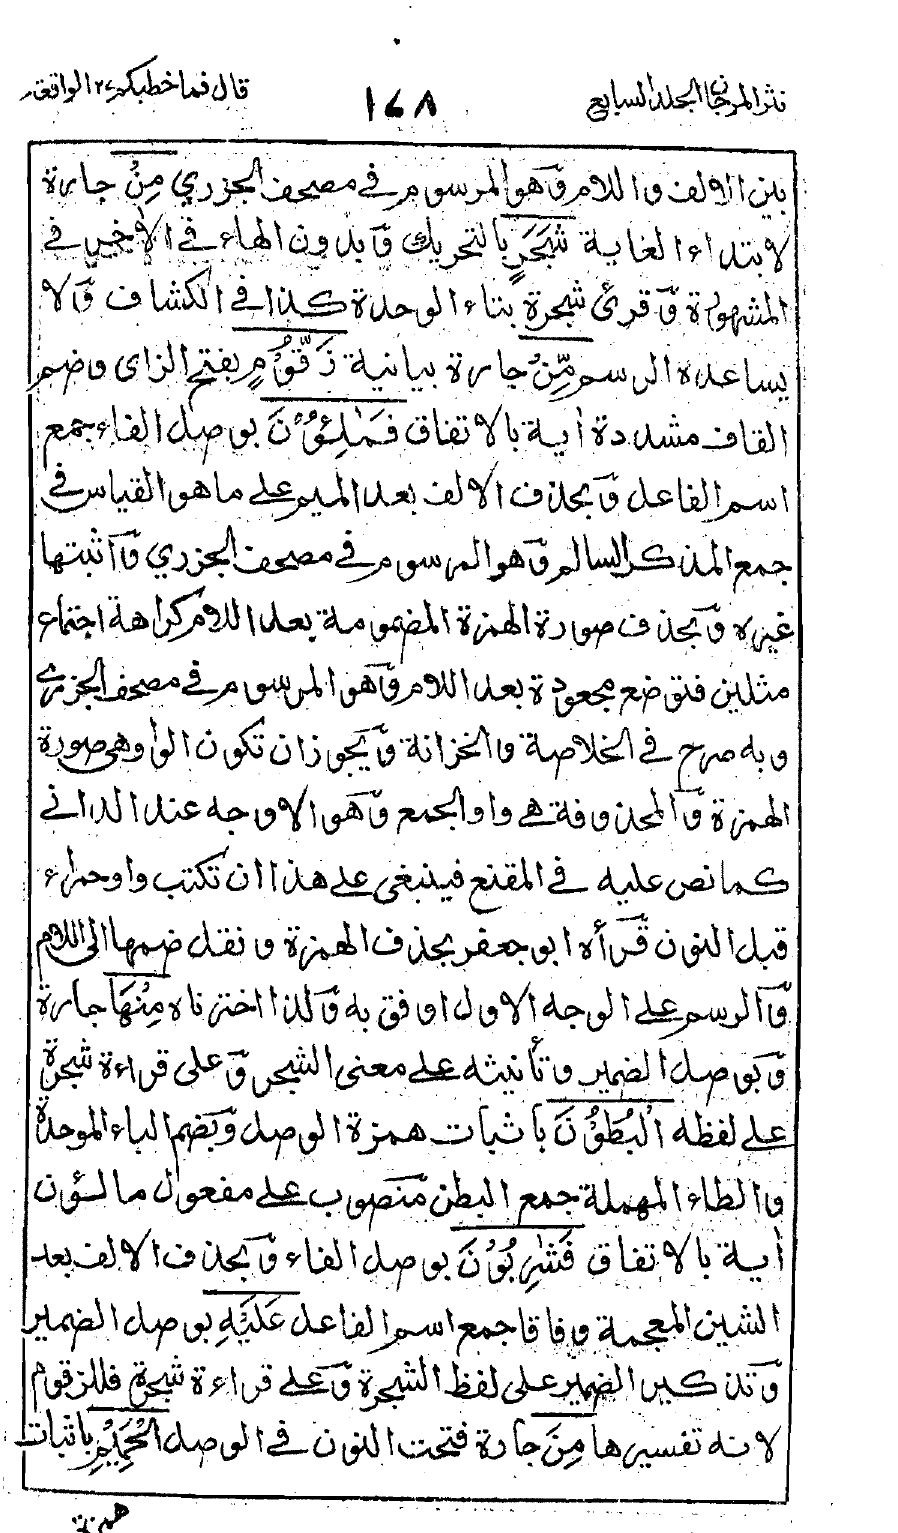 نثر المرجان المجلد السابع
١٦٨
قال فما خطبكم ٢٧ الواقعة
بين الالف واللام وّهو المرسوم في مصحف الجزري مِنْ جارة
لابتداء الغاية شَجَرٍ بالتحريك وّبدون الهاء في الاخير في
المشهورة وّقرئ شجرة بتاء الوحدة كذا في الكشاف وّلا
يساعده الرسم مِّنْ جارة بيانية زَقُّوْمٍ بفتح الزاى وضم
القاف مشددة أية بالاتفاق فَمَالِـُٔوْنَ بوصل الفاء جمع
اسم الفاعل وّبحذف الالف بعد الميم على ما هو القياس في
جمع المذكر السالم وّهو المرسوم في مصحف الجزري وّاثبتها
غيره وّبحذف صورة الهمزة المضمومة بعد اللام كراهة اجتماع
مثلين فتوضع مجعودة بعد اللام وّهو المرسوم في مصحف الجزري
وبه صرح في الخلاصة والخزانة وّيجوز ان تكون الواو هى صورة
الهمزة وّالمحذوفة هي واو الجمع وّهو الاوجه عند الداني
كما نص عليه في المقنع فينبغى على هذا ان تكتب واو حمراء
قبل النون قّرأه ابو جعفر بحذف الهمزة ونقل ضمها الى اللام
وّالرسم على الوجه الاول اوفق به وّلذا اخترناه مِنْهَا جارة
وّبوصل الضمير وتأنيثه على معنى الشجر وّعلى قراءة شجرة
على لفظه الْبُطُوْنَ باثبات همزة الوصل وّبضم الباء الموحدة
والطاء المهملة جمع البطن منصوب على مفعول مالئون
أية بالاتفاق فَشٰرِبُوْنَ بوصل الفاء وّبحذف الالف بعد
الشين المعجمة وفاقا جمع اسم الفاعل عَلَيْهِ بوصل الضمير
وّتذكير الضمير على لفظ الشجرة وّعلى قراءة شجرة فللزقوم
لانه تفسيرها مِنَ جارة فتحت النون في الوصل الْحَمِيْمِ باثبات
همزة